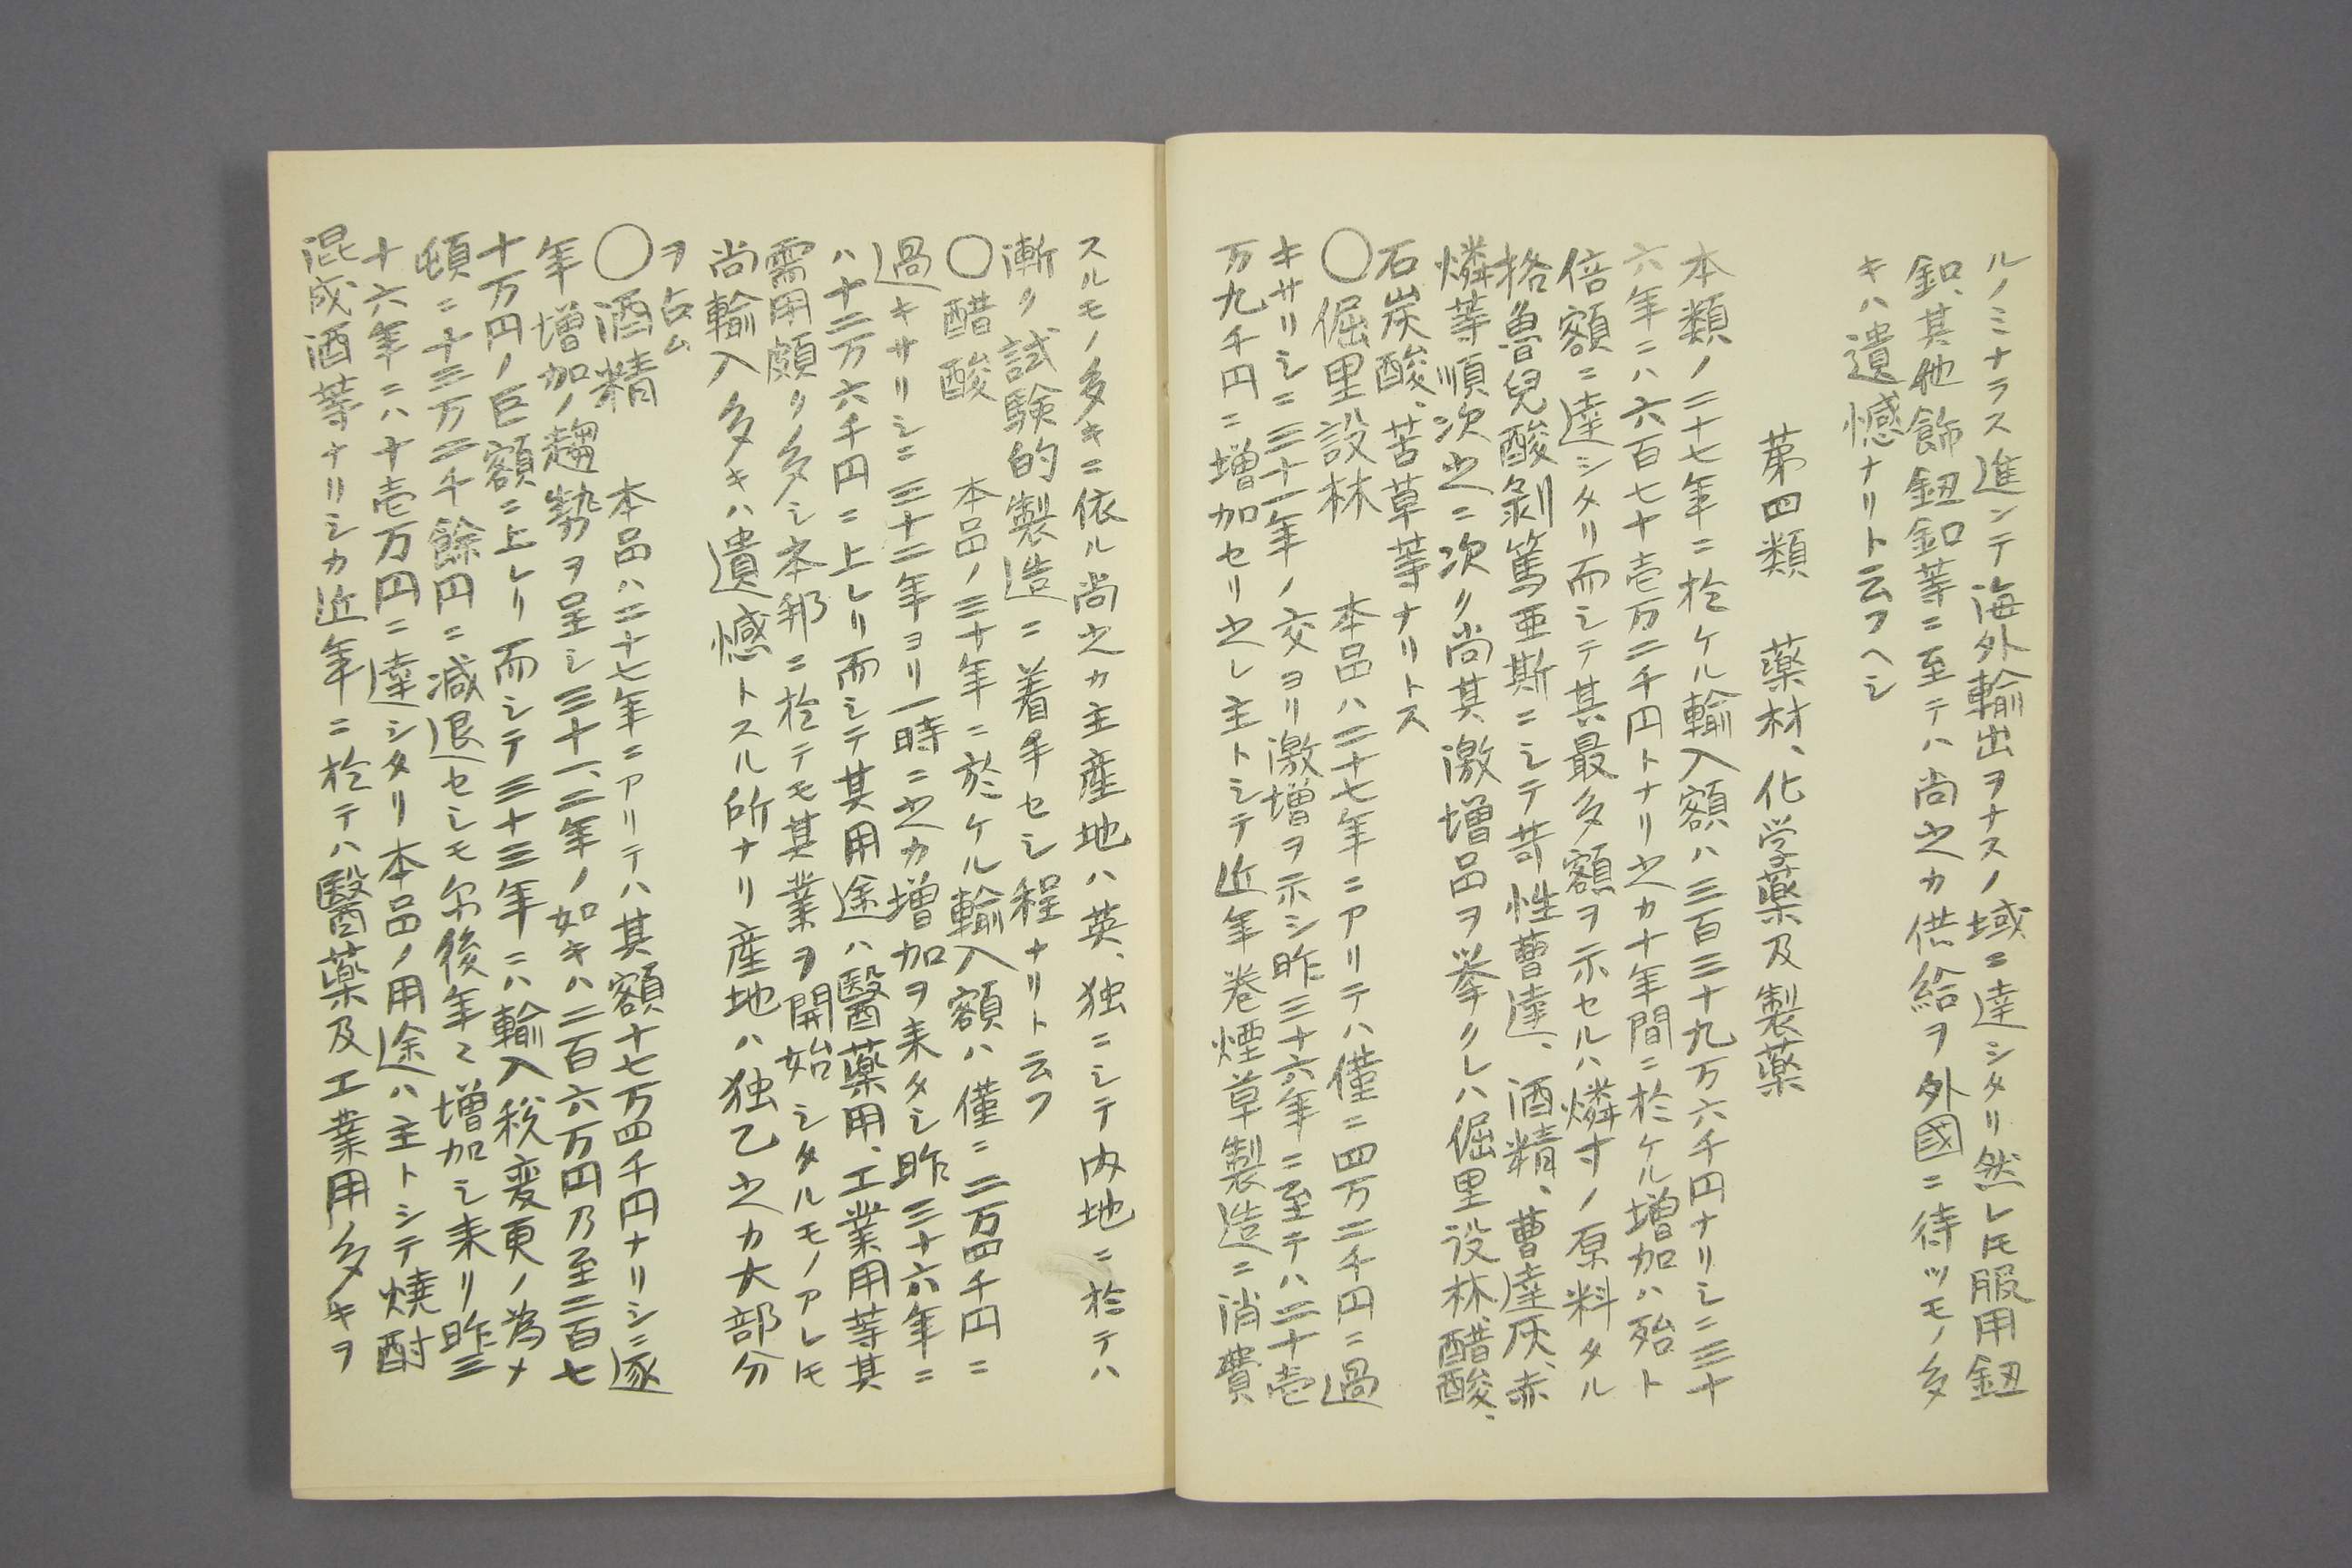 ルノミナラス進ンテ海外輸出ヲナスノ域ニ達シタリ然レ𪜈服用鈕
釦、其他飾鈕釦等ニ至テハ尚之カ供給ヲ外國ニ待ツモノ多
キハ遺憾ナリト云フヘシ
第四類　薬材、化学薬及製薬
本類ノ二十七年ニ於ケル輸入額ハ三百三十九万六千円ナリシニ三十
六年ニハ六百七十壱万二千円トナリ之カ十年間ニ於ケル増加ハ殆ト
倍額ニ達シタリ而シテ其最多額ヲ示セルハ燐寸ノ原料タル
格魯兒酸剥篤亜斯ニシテ苛性曹達、酒精、曹達灰、赤
燐等順次之ニ次ク尚其激増品ヲ挙クレハ倔里设林、醋酸、
石炭酸、苦草等ナリトス
〇倔里設林　本品ハ二十七年ニアリテハ僅ニ四万二千円ニ過
キサリシニ三十一年ノ交ヨリ激増ヲ示シ昨三十六年ニ至テハ二十壱
万九千円ニ増加セリ之レ主トシテ近年巻煙草製造ニ消費
スルモノ多キニ依ル尚之カ主産地ハ英、独ニシテ内地ニ於テハ
漸ク試験的製造ニ着手セシ程ナリト云フ
〇醋酸　本品ノ三十年ニ於ケル輸入額ハ僅ニ二万四千円ニ
過キサリシニ三十二年ヨリ一時ニ之カ増加ヲ来タシ昨三十六年ニ
ハ十二万六千円ニ上レリ而シテ其用途ハ醫薬用、工業用等其
需用頗ル多シ本邦ニ於テモ其業ヲ開始シタルモノアレ𪜈
尚輸入多キハ遺憾トスル所ナリ産地ハ独乙之カ大部分
ヲ占ム
〇酒精　本品ハ二十七年ニアリテハ其額十七万四千円ナリシニ逐
年増加ノ趨勢ヲ呈シ三十一、二年ノ如キハ二百六万円乃至二百七
十万円ノ巨額ニ上レリ而シテ三十三年ニハ輸入税変更ノ為メ
頓ニ十三万二千餘円ニ減退セシモ尓後年々増加シ来リ昨三
十六年ニハ十壱万円ニ達シタリ本品ノ用途ハ主トシテ焼酎
混成酒等ナリシカ近年ニ於テハ醫薬及工業用多キヲ